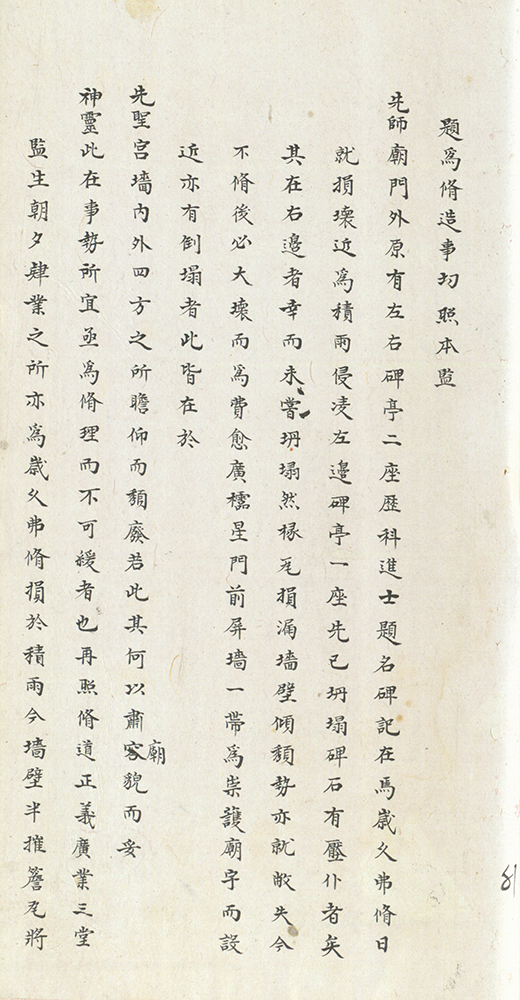 題爲脩造事切照本監
先師廟門外原有左右碑亭二座歷科進士題名碑記在焉歲久弗脩日
就損壞近爲積雨侵凌左邉碑亭一座先已坍塌碑石有壓仆者矣
其在右邉者幸而未嘗坍塌然椽瓦損漏墻壁傾頽勢亦就敝失今
不脩後必大壞而爲費愈廣櫺星門前屏墻一帶爲崇護廟宇而設
近亦有倒塌者此皆在於
先聖宫墻内外四方之所瞻仰而頽廢若此其何以肅廟貌而妥
神靈此在事勢所宜亟爲脩理而不可緩者也再照脩道正義廣業三堂
監生朝夕肄業之所亦爲歲久弗脩損於積雨今墻壁半摧簷瓦將
81